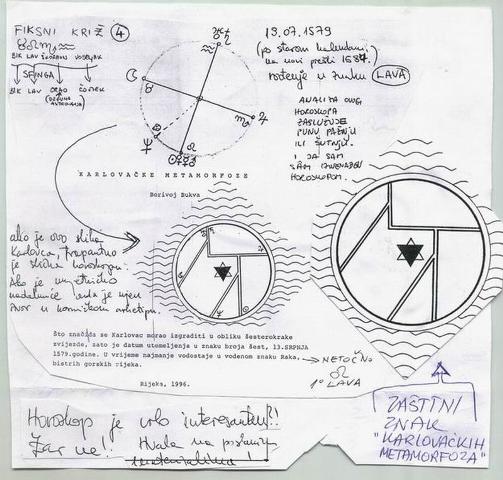 FIKSNI KRIŽ 4
BIK LAV ŠKORPION VODENJAK
SFINGA
BIK LAV ORAO ČOVJEK
13.07.1579
(po starom kalendaru,
rođenje u znaku LAVA
ANALIZA OVOG
HOROSKOPA
ZASLUŽUJE
PUNU PAŽNJU
ILI ŠUTNJU.
I JA SAM
SAM IZNENAĐEN
HOROSKOPOM.
KARLOVAČKE METAMORFOZE
Borivoj Bukva
ako je ovo slika
Karlovca, frapantno
je slična horoskopu.
Ako je umjetničko
nadahnuće
Što značiše se Karlovac morao izgraditi u obliku šesterokrake
zvijezde, zato je datum utemeljenja u znaku broja šest, 13.SRPNJA
1579.godine. U vrijeme najmanje vodostaje u vodenom znaku Raka,
bistrih gorskih rijeka.
NETOČNO
1° LAVA
Rijeka, 1996.
Horoskop je vrlo interesantan!!
Zar ne! Hvala na poslanim
materijalima!
ZAŠTITNI
ZNAK
"KARLOVAČKIH
METAMORFOZA"